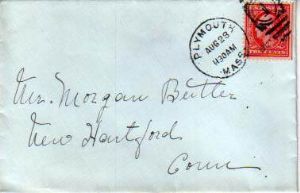 PLYMOUTH
AUG 28
1130AM
MASS.
Mrs. Morgan Butler
New Hartford
Conn.